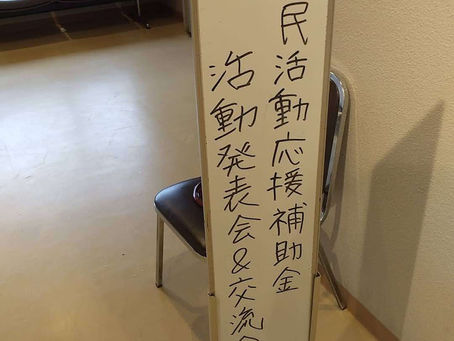 民活動応援補助金
活動発表会&交流会